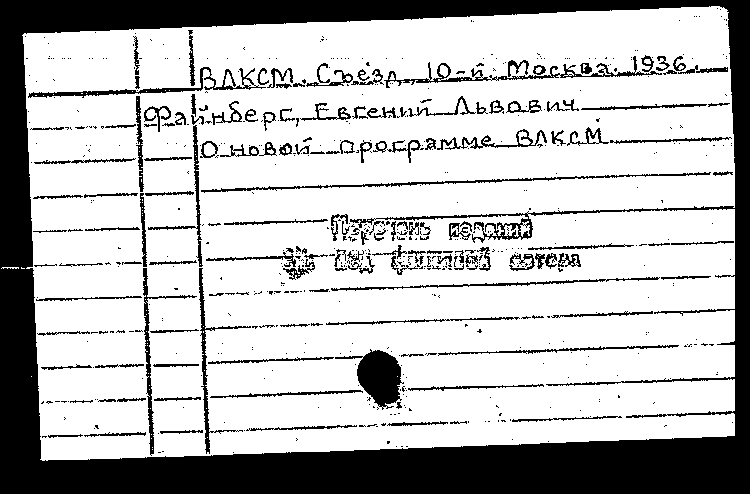 ВЛКСМ. Съезд, 10-й. Москва. 1936.
Файнберг, Евгений Львович
О новой программе ВЛКСМ
Перечень изданий
см. под фамилией автора